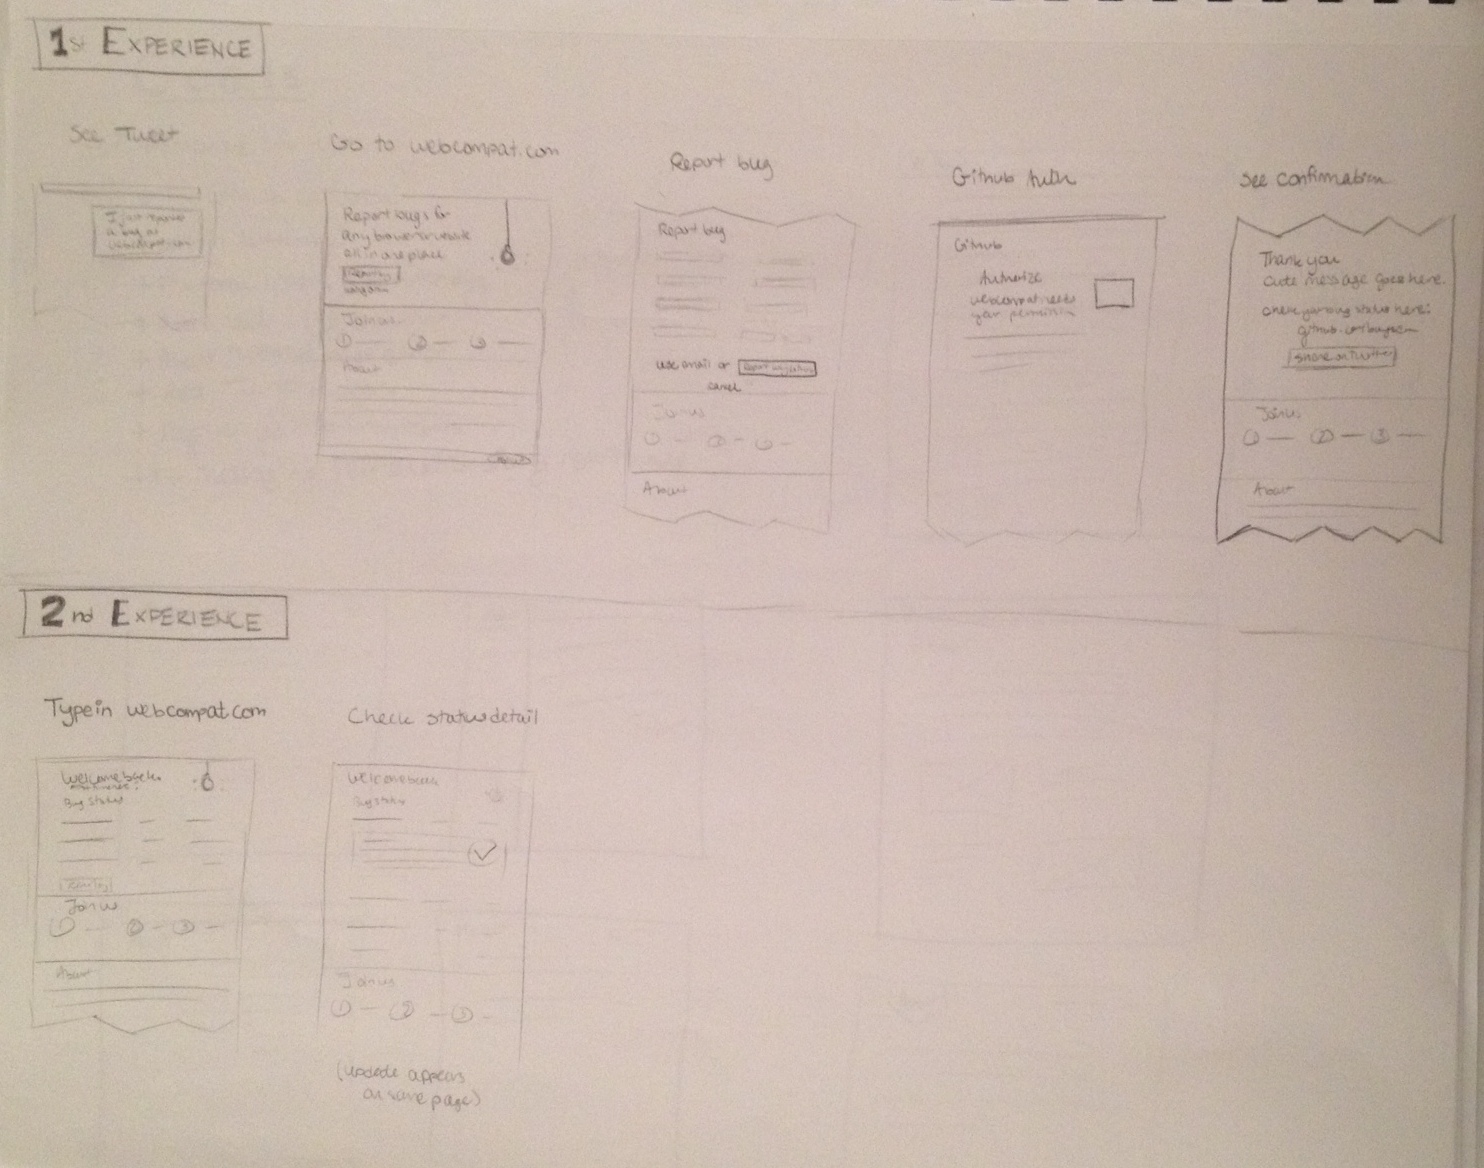 1st EXPERIENCE
See Tweet
I just reported
a bug at
webcompat.com
Go to webcompat.com
Report bugs for
any browser or website
all in one place
Join us
1 2 3
About
Report bug
Report bug
use email or Report
cancel
Join us
1 2 3
About
Github Auth
Github
Authorize
webcompat needs
your permission
See confirmation
Thank you
Cute message goes here.
Check your bug status here:
Share on Twitter
Join us
1 2 3
About
2nd EXPERIENCE
Type in webcompat.com
Welcome back
Bug Status
Join us
1 2 3
About
Check status detail
Welcome back
Bug Status
Join us
1 2 3
(update appears
on same page)